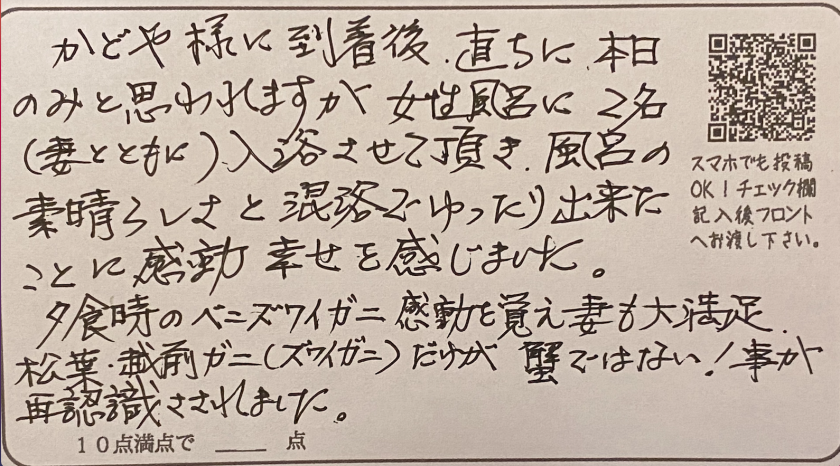 かどや様に到着後、直ちに、本日
のみと思われますが 女性風呂に 2名
(妻とともに)、入浴させて頂き、風呂の
素晴らしさと混浴でゆったり出来た
ことに感動 幸せを感じました。
夕食時のベニズワイガニ 感動を覚え妻も大満足、
松葉・越前ガニ(ズワイガニ)だけが 蟹ではない!事が
再認識さされました。
スマホでも投稿
OK!チェック欄
記入後フロント
へお渡し下さい。
10点満点で ____ 点